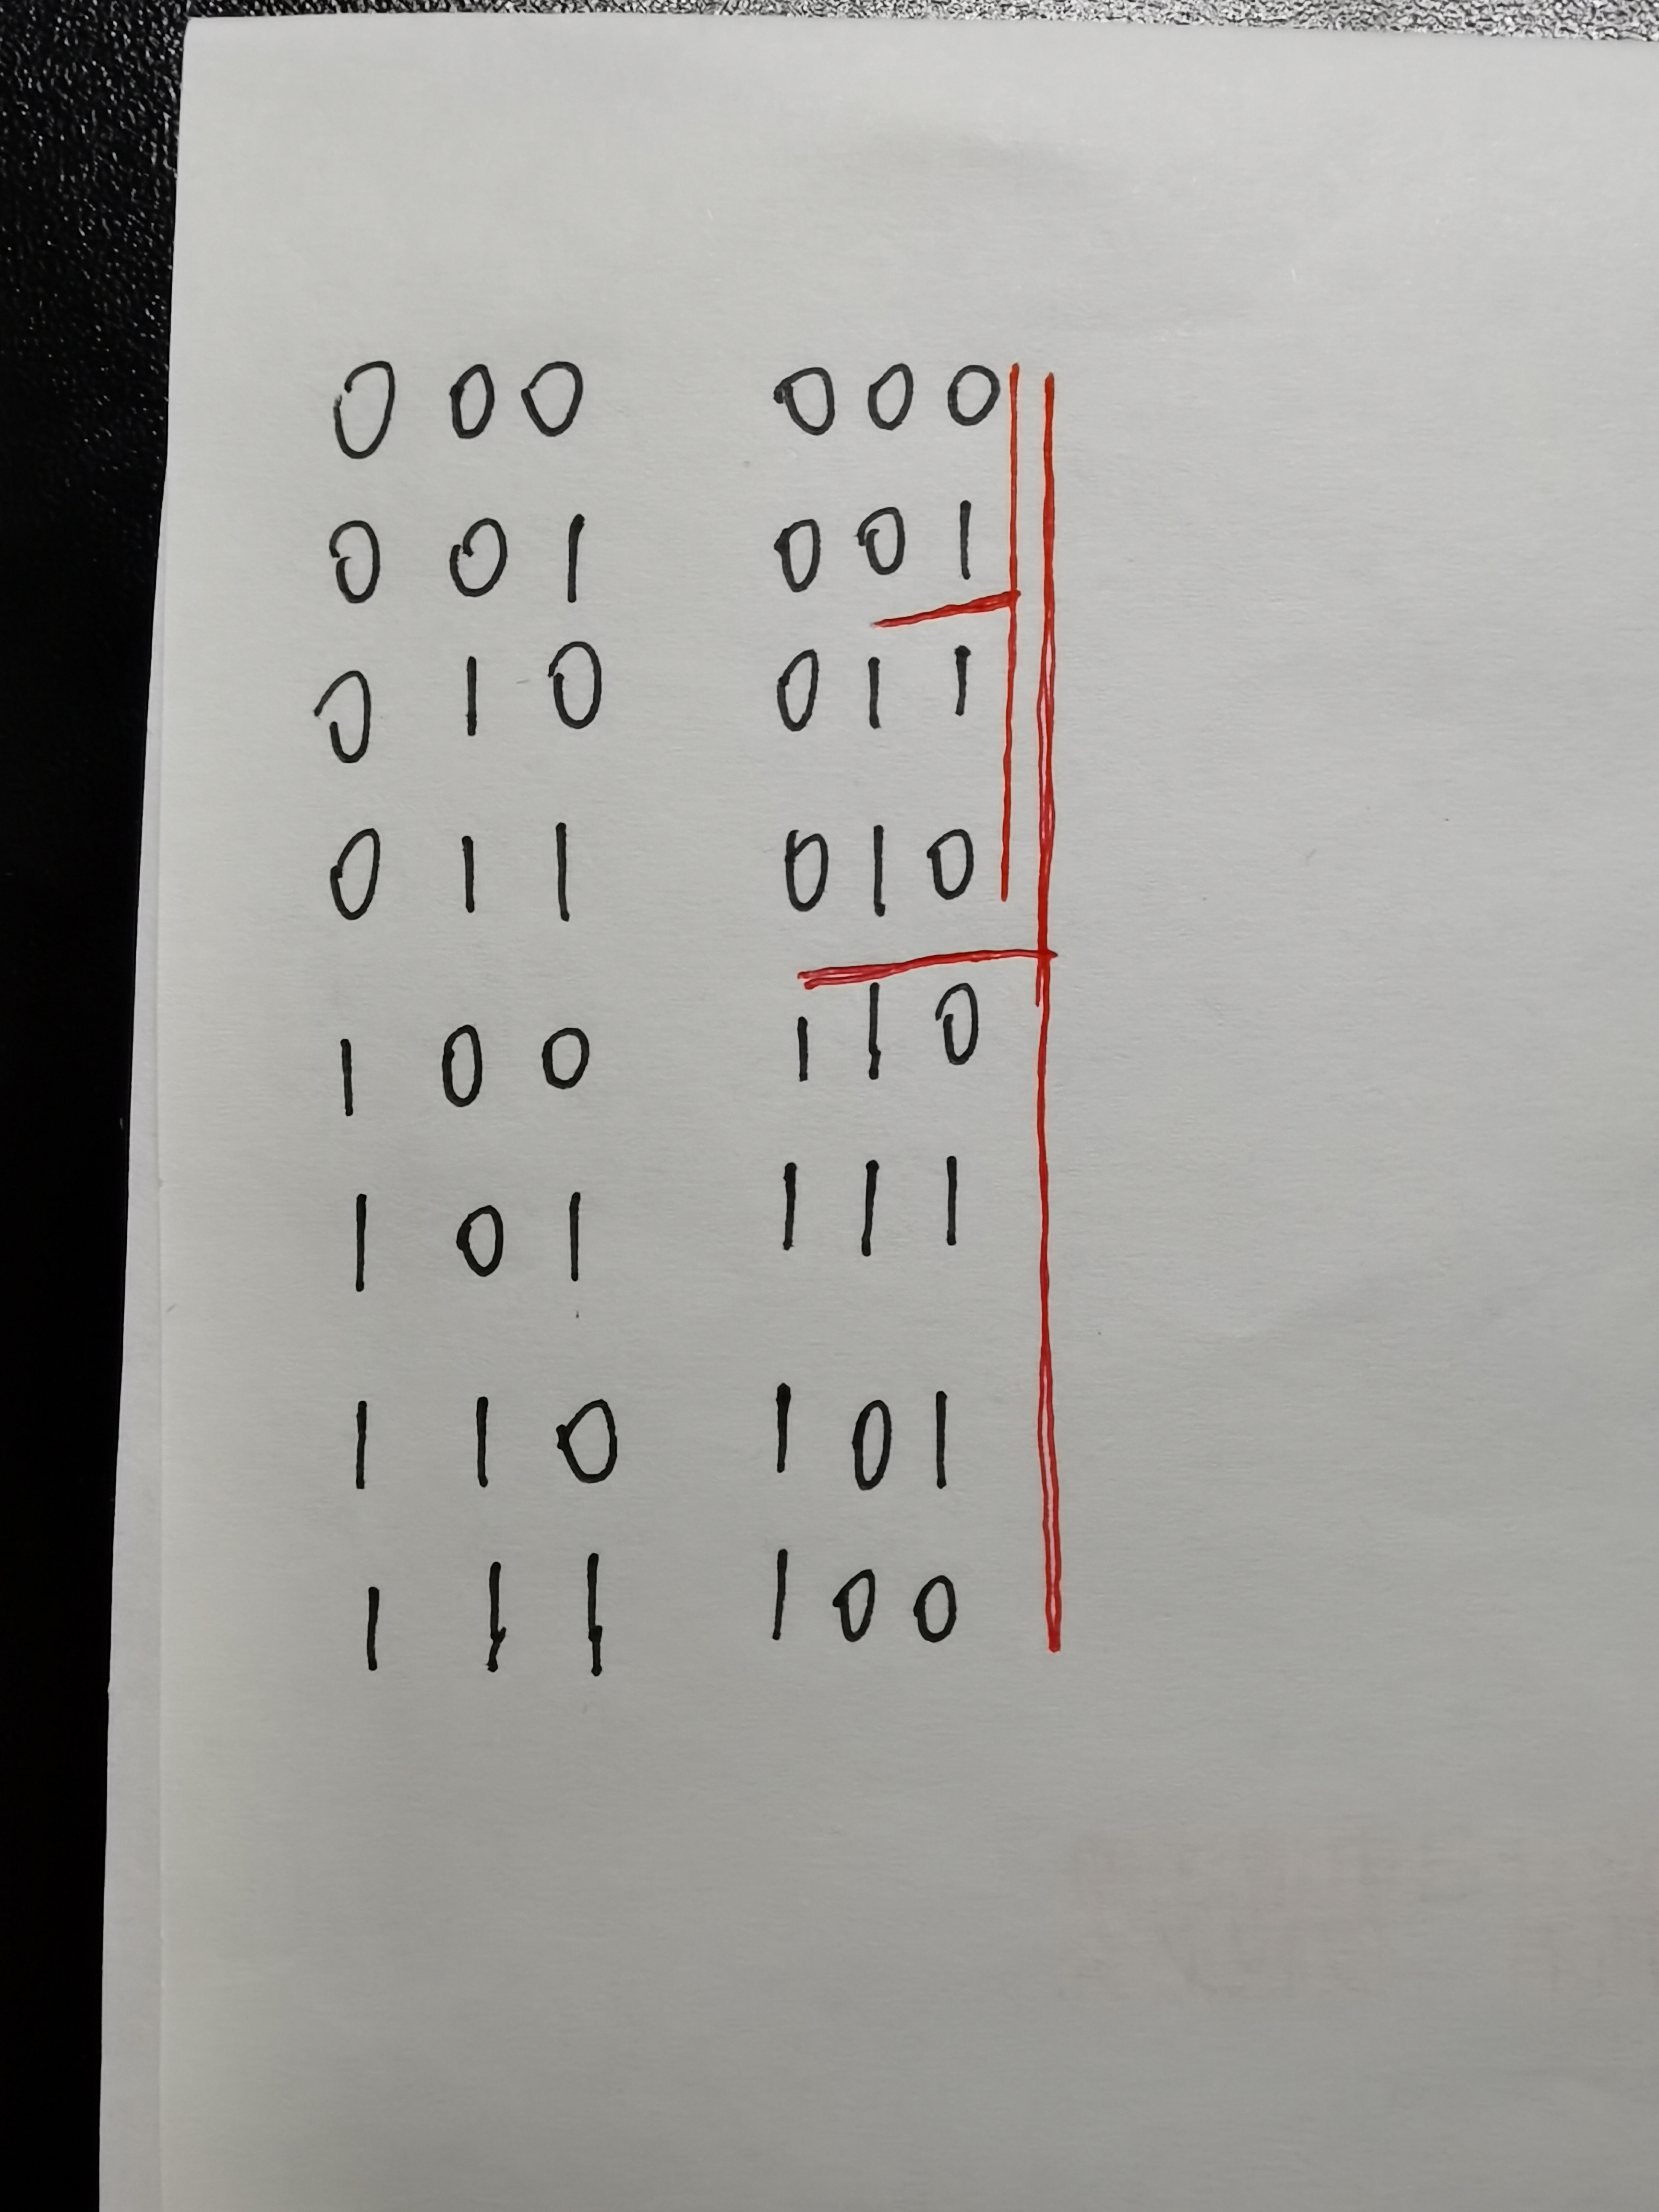 000 000
001 001
010 011
011 010
100 110
101 111
110 101
111 100